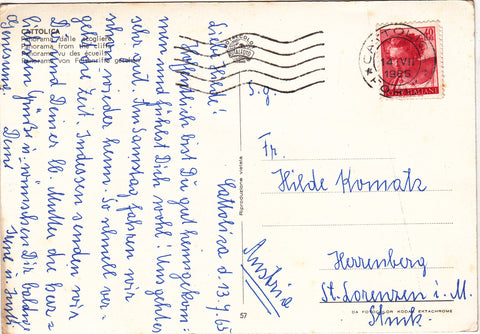 CATTOLICA
Panorama dalle scogliere
Panorama from the cliffs
Panorama vu des écueils
Panorama von Felsenriff gesehen
Cattolica d. 13.7.65
Liebe Hilde!
Hoffentlich bist Du gut heimgekom-
men und fühlst Dich wohl! Uns geht es
sehr gut. Am Samstag fahren wir
schon wieder heim. So schnell ver-
geht die Zeit. Indessen senden wir
Dir und Deiner lb. Mutter die herz-
lichsten Grüße u. wünschen Dir baldige
Genesung!
Deine
Riproduzione vietata
57
S.g.
Fr.
Hilde Komatz
Herrenberg
St. Lorenzen i. M.
Stmk.
Austria
DA FOTOCOLOR KODAK EKTACHROME
CATTOLICA
1965
40